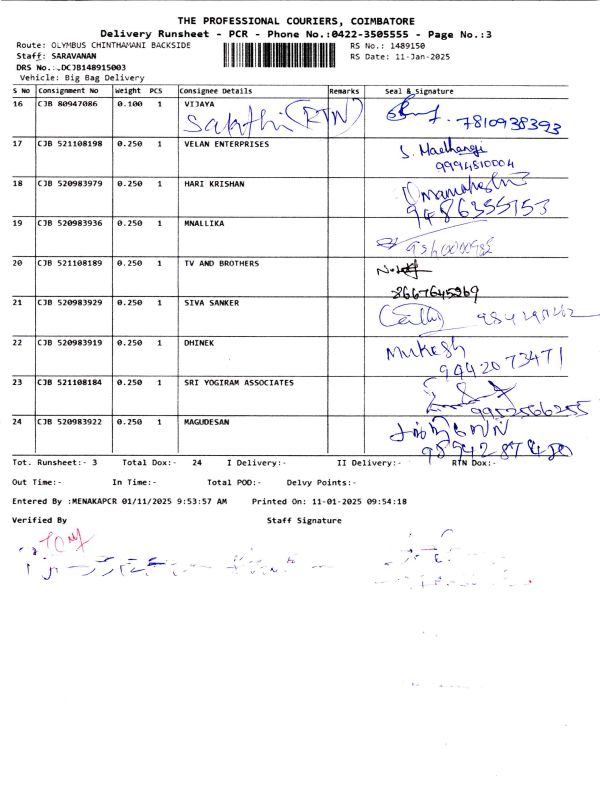 THE PROFESSIONAL COURIERS, COIMBATORE
Delivery Runsheet - PCR - Phone No.:0422-3505555 - Page No.:3
Route: OLYMBUS CHINTHAMANI BACKSIDE RS No.: 1489150
Staff: SARAVANAN RS Date: 11-Jan-2025
DRS No.:.DCJB148915003
Vehicle: Big Bag Delivery
S No Consignment No Weight PCS Consignee Details Remarks Seal & Signature
16 CJB 80947086 0.100 1 VIJAYA
Sakthi (RTN) 7810938393
17 CJB 521108198 0.250 1 VELAN ENTERPRISES
S. Maethangi
9994810004
18 CJB 520983979 0.250 1 HARI KRISHAN
9486355153
19 CJB 520983936 0.250 1 MNALLIKA
20 CJB 521108189 0.250 1 TV AND BROTHERS
8667645969
21 CJB 520983929 0.250 1 SIVA SANKER
22 CJB 520983919 0.250 1 DHINEK
Mukesh
9442073471
23 CJB 521108184 0.250 1 SRI YOGIRAM ASSOCIATES
9952566255
24 CJB 520983922 0.250 1 MAGUDESAN
Tot. Runsheet:- 3 Total Dox:- 24 I Delivery:- II Delivery:- RTN Dox:-
Out Time:- In Time:- Total POD:- Delvy Points:-
Entered By :MENAKAPCR 01/11/2025 9:53:57 AM Printed On: 11-01-2025 09:54:18
Verified By Staff Signature